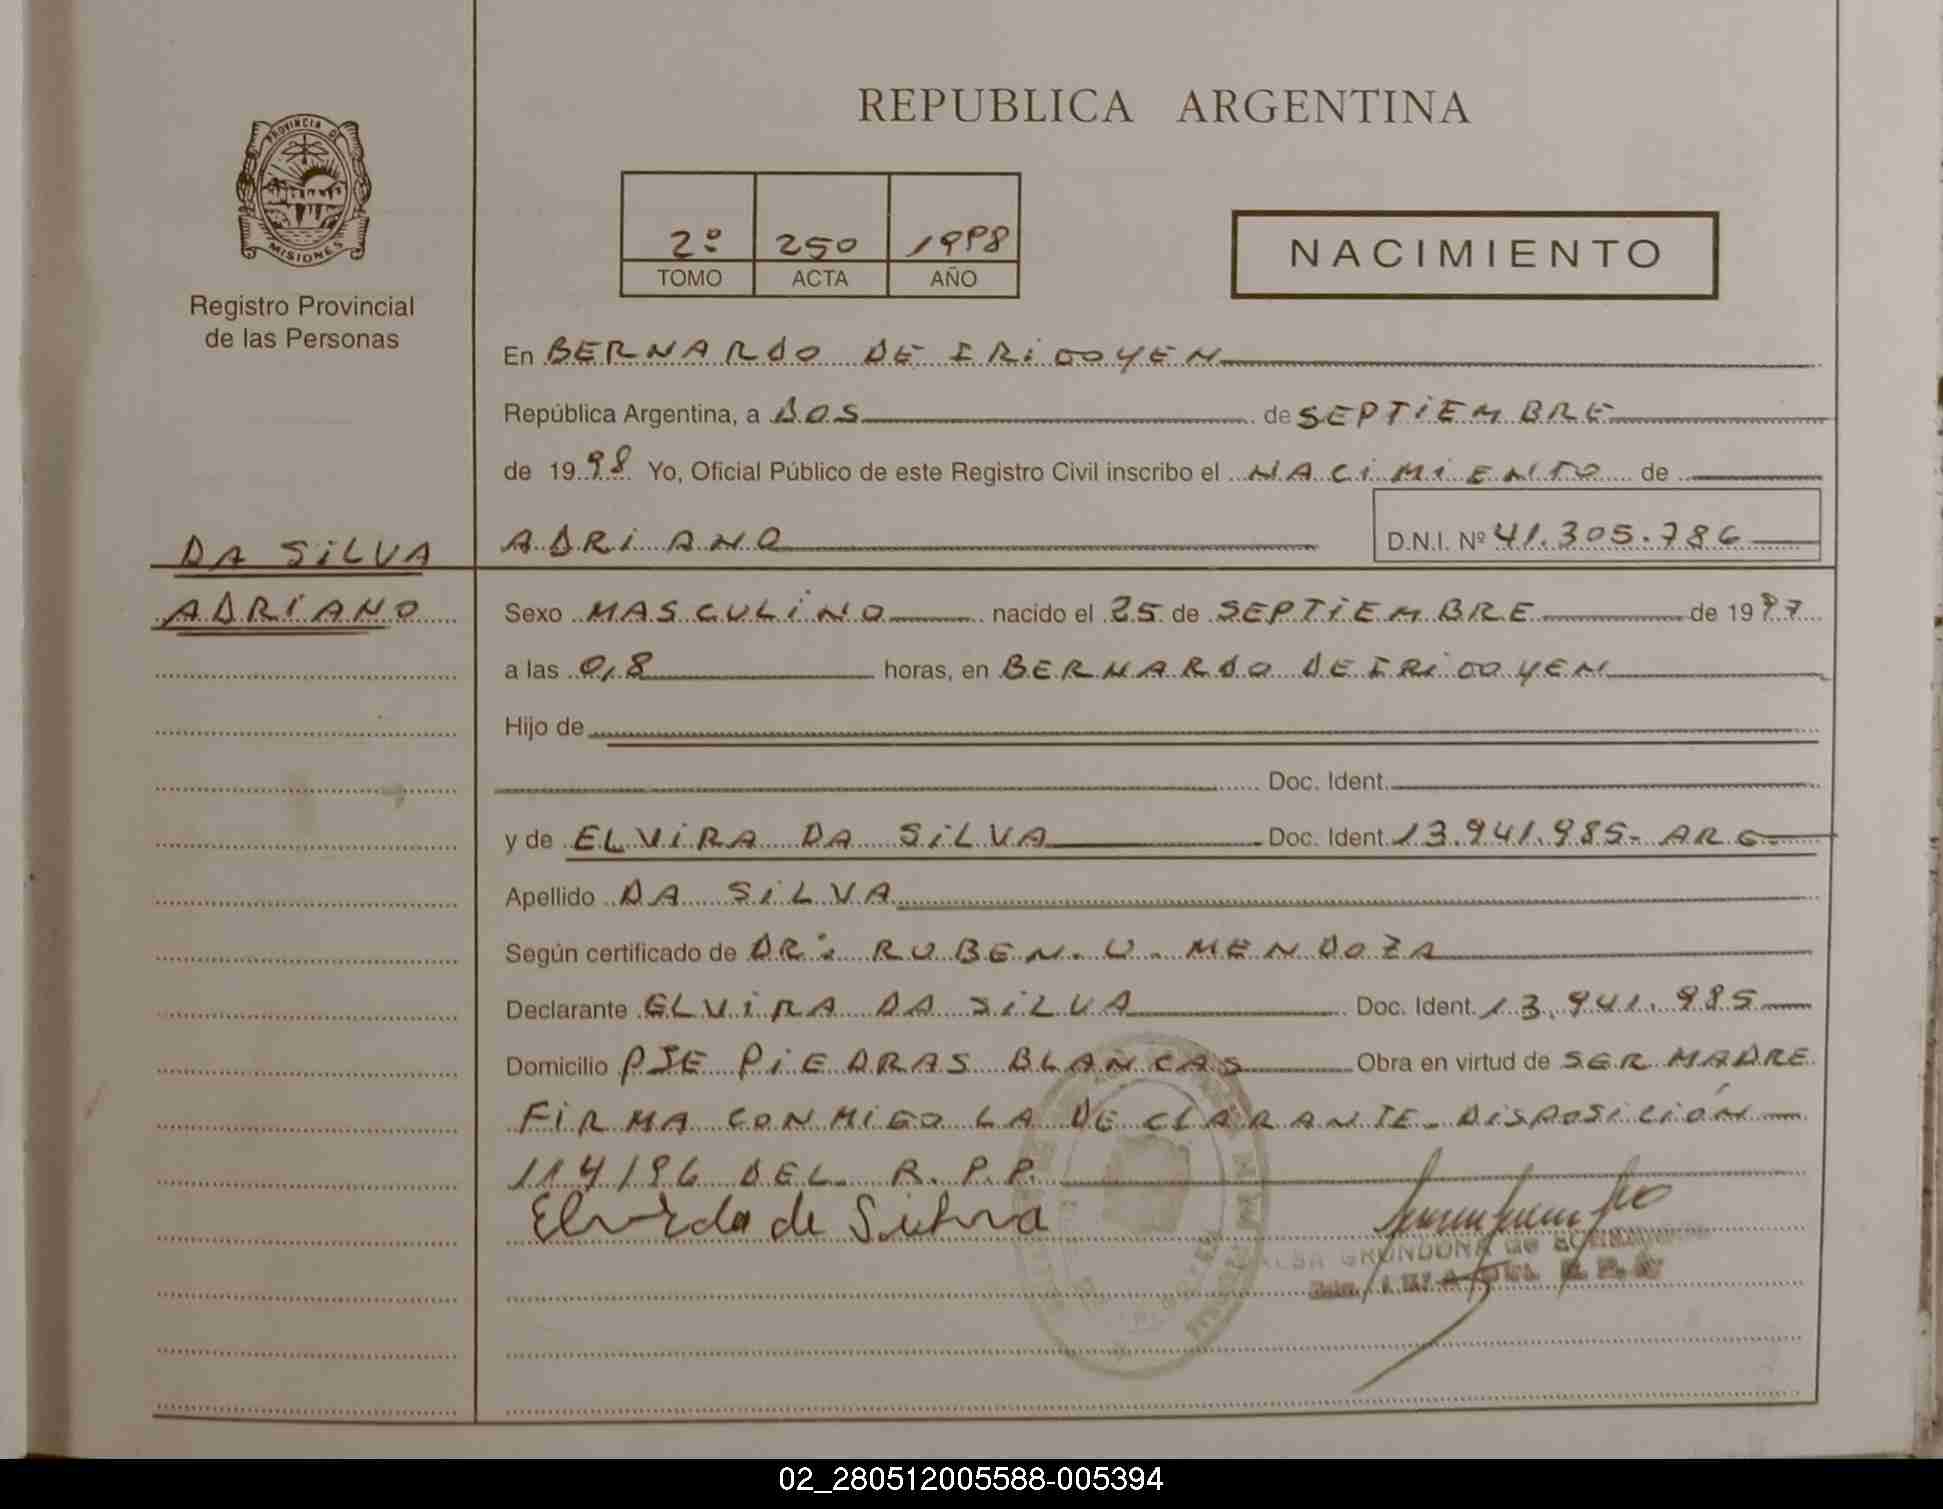 REPUBLICA ARGENTINA
PROVINCIA DE
MISIONES
Registro Provincial
de las Personas
2º 250 1998
TOMO ACTA AÑO
NACIMIENTO
En BERNARDO DE IRIGOYEN
República Argentina, a DOS de SEPTIEMBRE
de 1998 Yo, Oficial Público de este Registro Civil inscribo el NACIMIENTO de
ADRIANO D.N.I. Nº 41.305.786
DA SILVA
ADRIANO
Sexo MASCULINO nacido el 25 de SEPTIEMBRE de 1997
a las 0,8 horas, en BERNARDO DE IRIGOYEN
Hijo de
Doc. Ident.
y de ELVIRA DA SILVA Doc. Ident. 13.941.985- ARG
Apellido DA SILVA
Según certificado de DR: RUBEN. U. MENDOZA
Declarante ELVIRA DA SILVA Doc. Ident. 13.941.985
Domicilio PJE PIEDRAS BLANCAS Obra en virtud de SER MADRE
FIRMA CONMIGO LA DECLARANTE- DISPOSICIÓN
114/96 DEL R.P.P.
GRONDONA de
02_280512005588-005394